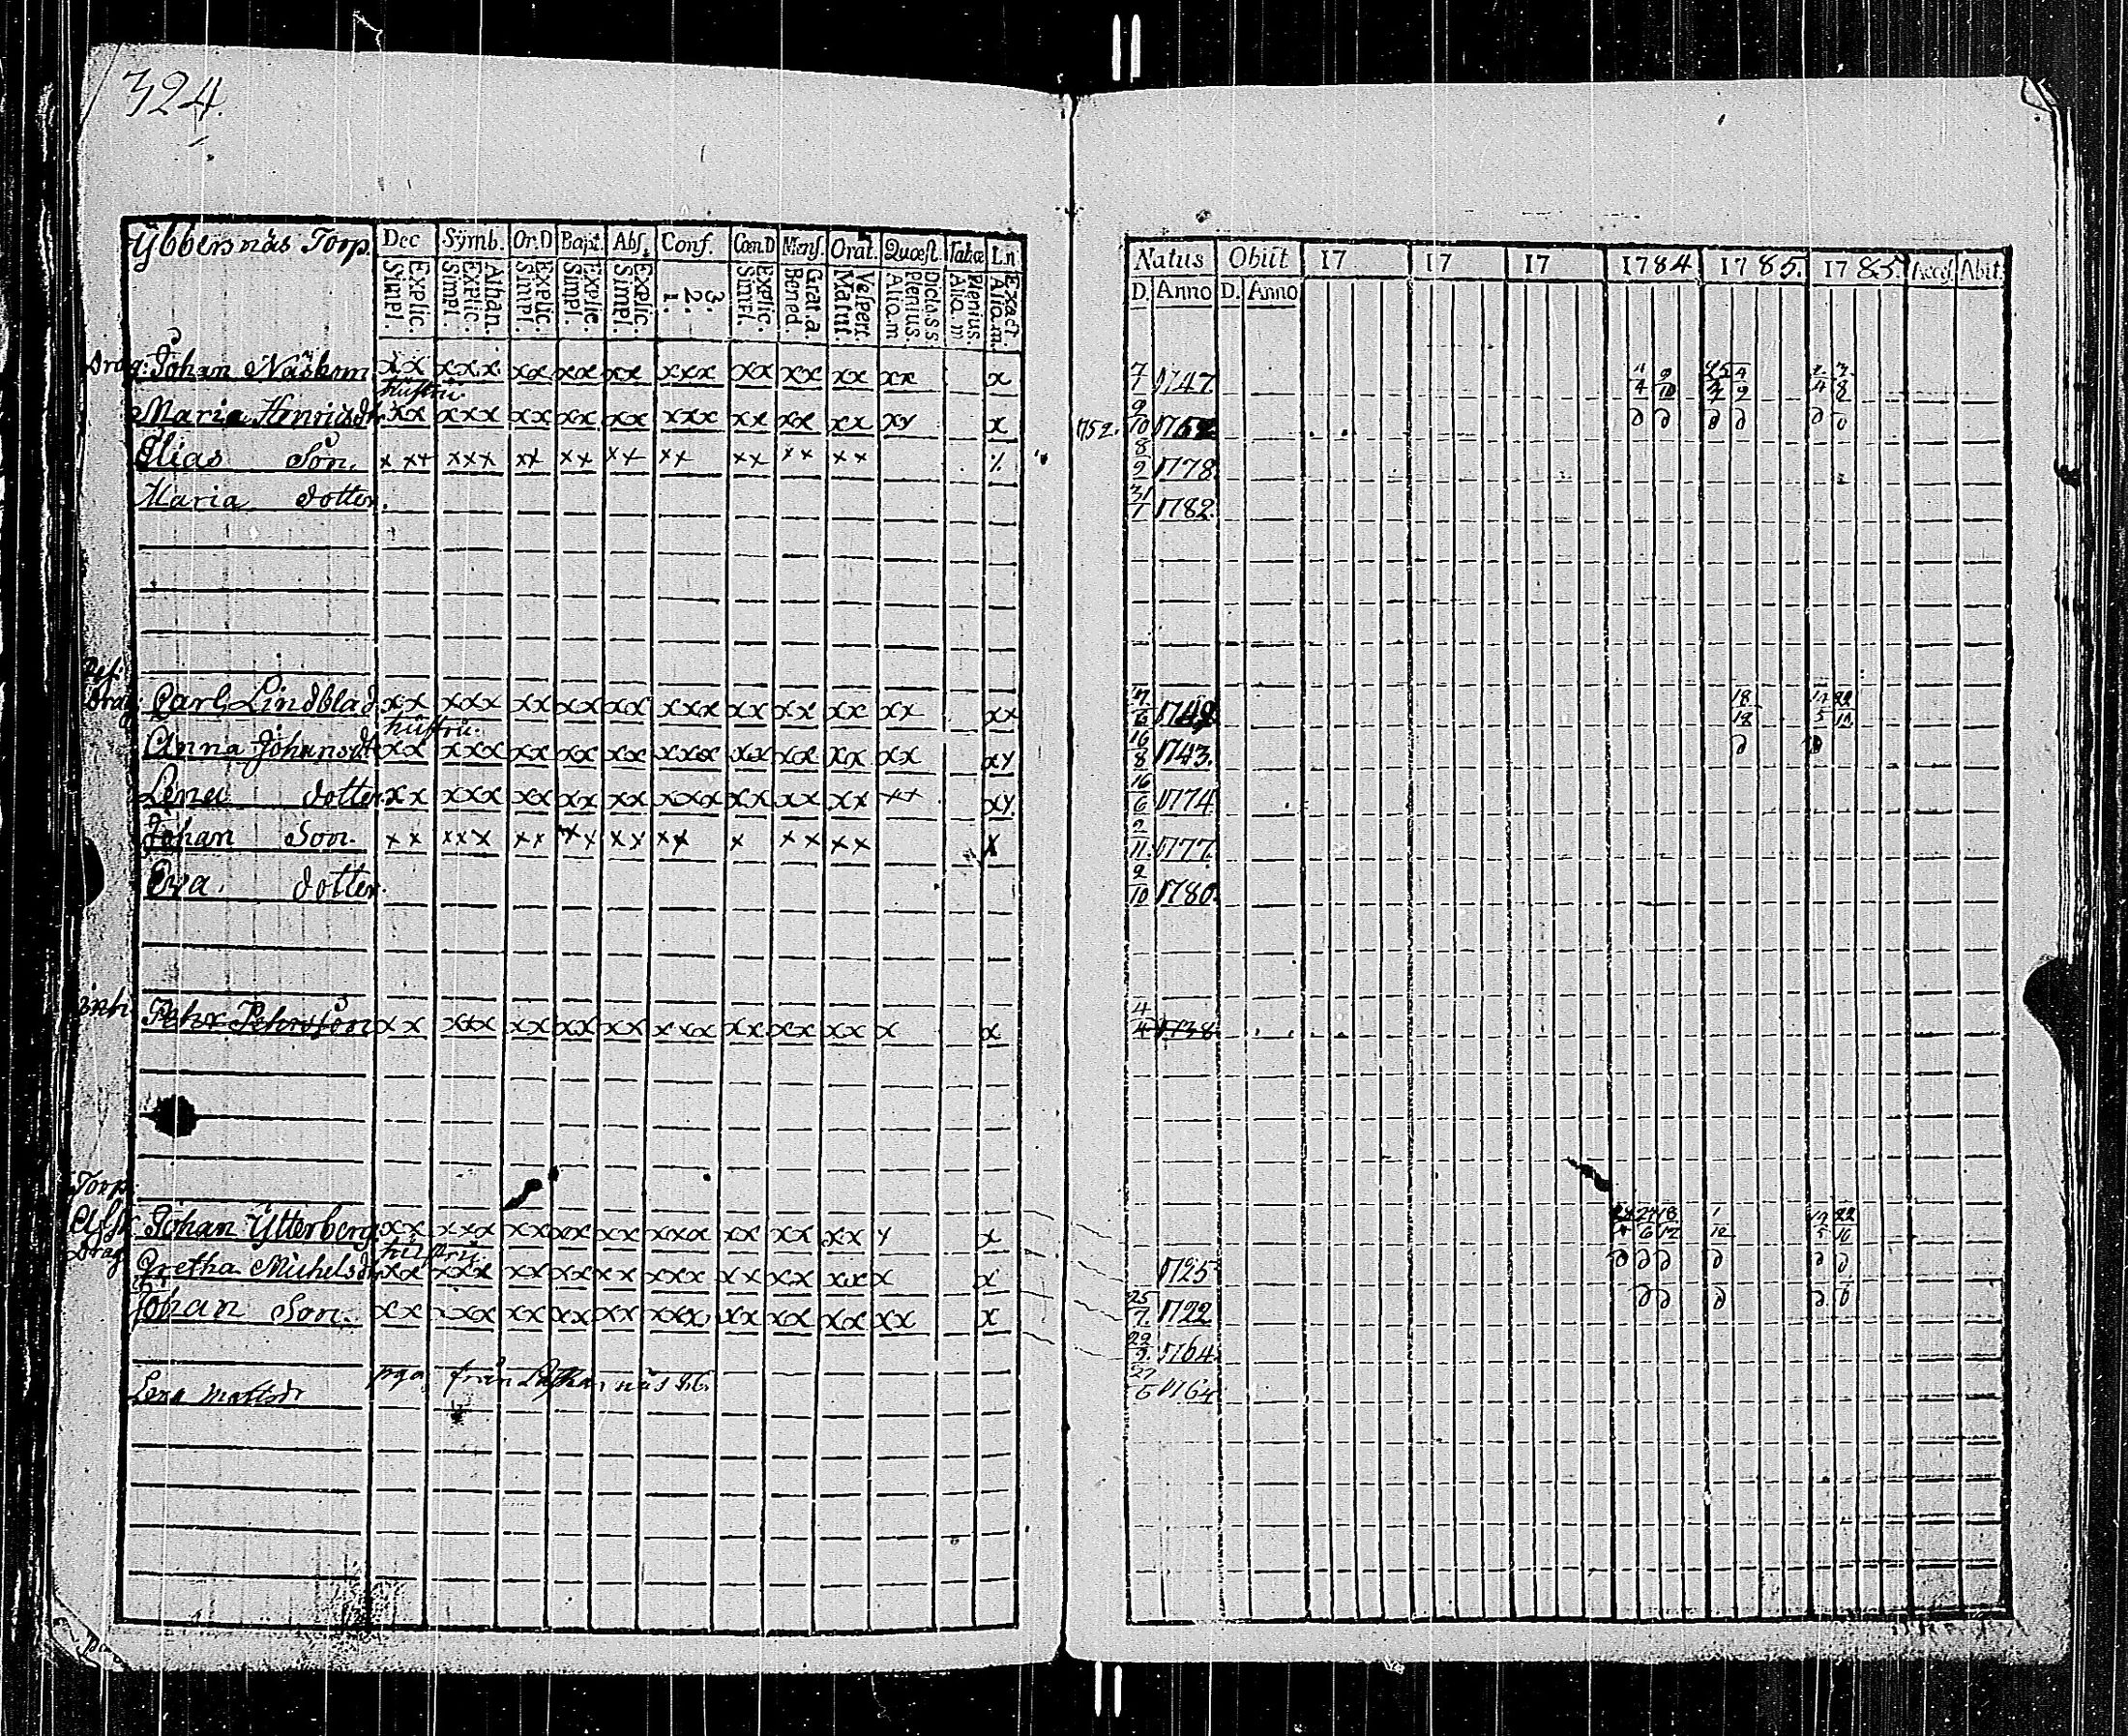 324.
Ybbersnäs Torp. Dec Symb. Or.D Bapt. Abs. Conf. Cœn.D Mens. Orat. Quæst. Tabtæ L.n
Simpl. Explic. Simpl. Explic. Athan. Simpl. Explic. Simpl. Explic. Simpl. Explic. 1. 2. 3. Simpl. Explic. Bened. Grat.a. Matut. Vespert. Aliq.m Plenius. Dicta.s.s. Aliq.m Plenius. Aliq.m. Exact.
Drag. Johan Näsbom xx xxx xx xx xx xxx xx xx xx xx x
hustru.
Maria Henricsdr. xx xxx xx xx xx xxx xx xx xx xy x
Elias Son. x xx xxx xx xx xx xx xx xx xx
Maria dotter.
Drag. Carl Lindblad xx xxx xx xx xx xxx xx xx xx xx xx
hustru.
Anna Johansdr xx xxx xx xx xx xxx xx xx xx xx xy
Lena dotter xx xxx xx xx xx xxx xx xx xx xx xy
Johan Son. xx xxx xx xx xx xx x xx xx x
Ewa. dotter.
Pehr Pehrsson xx xxx xx xx xx xxx xx xx xx x x
Torp.
Afsk. Johan Ytterberg xx xxx xx xx xx xxx xx xx xx y x
Drag. hustru.
Gretha Michelsdr xx xxx xx xx xx xxx xx xx xx x x
Johan Son. xx xxx xx xx xx xxx xx xx xx xx x
Lena Mattsdr piga från
Natus Obiit 17 17 17 1784. 1785. 1785. Acces. Abit.
D. Anno D. Anno
7/1 1747. 4/9 4/8
1752. 9/10 1752
8/2 1778.
31/1 1782.
6 1742 18/12 22/10
16/8 1743.
16/6 1774.
2/11. 1777.
2/10 1780.
4/4 1738
1725
25/7. 1722
29/9. 1764.
27/6 1764